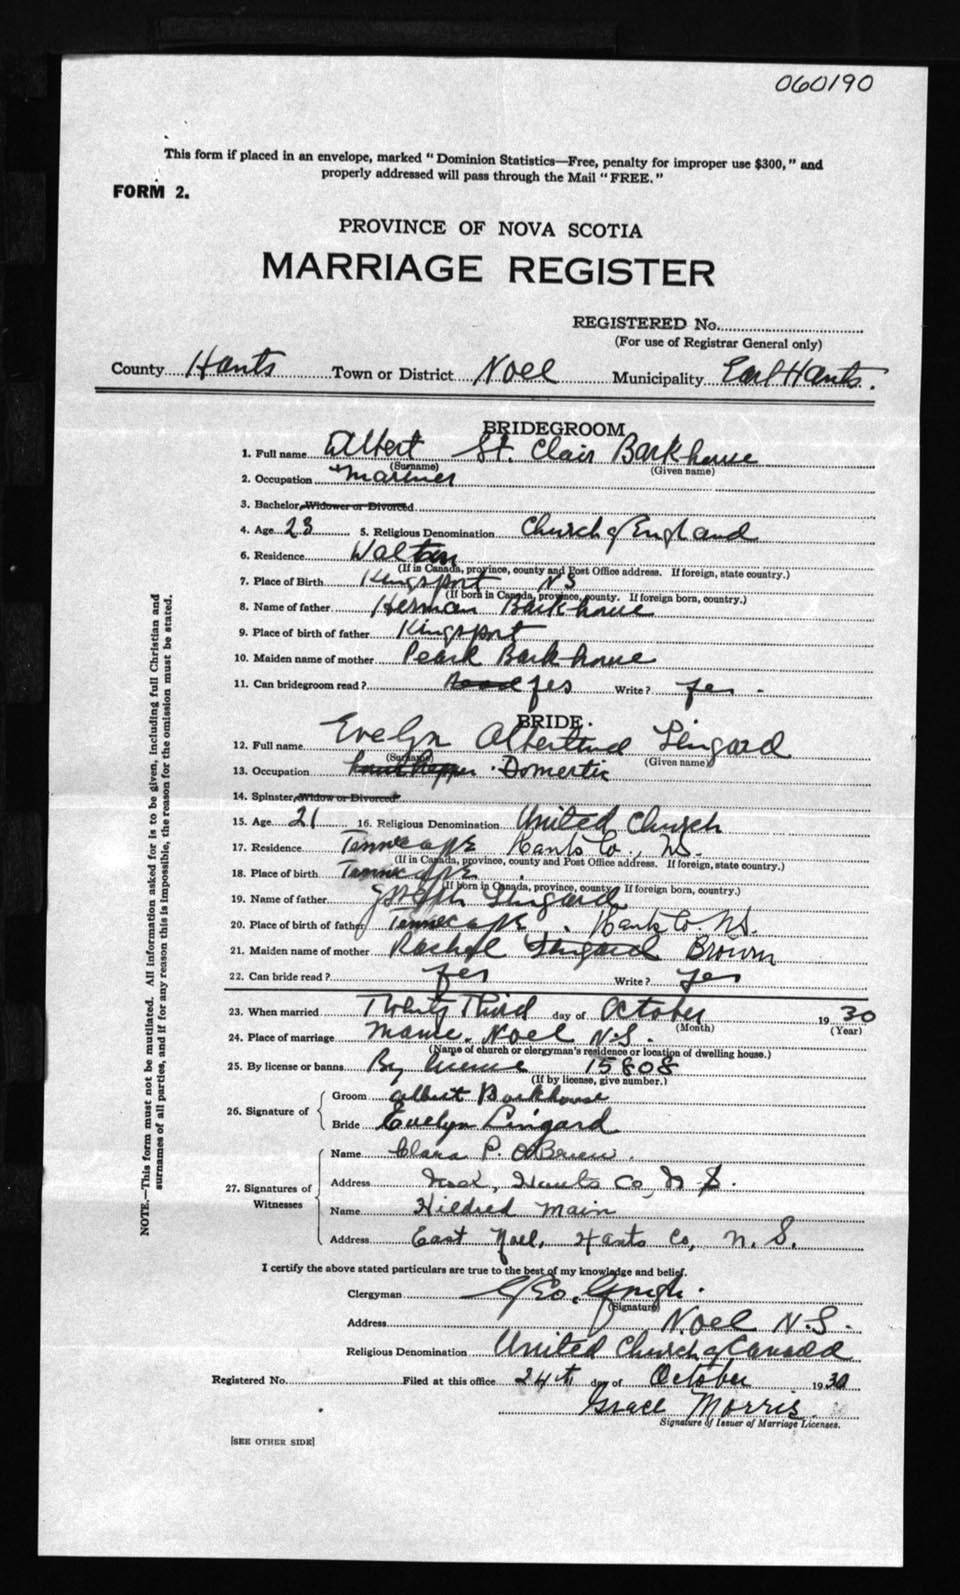 060190
This form if placed in an envelope, marked "Dominion Statistics—Free, penalty for improper use $300," and
properly addressed will pass through the Mail "FREE."
FORM 2.
PROVINCE OF NOVA SCOTIA
MARRIAGE REGISTER
REGISTERED No.
(For use of Registrar General only)
County Hants Town or District Noel Municipality East Hants.
BRIDEGROOM
1. Full name Albert St. Clair Barkhouse
(Surname) (Given name)
2. Occupation Mariner
3. Bachelor, Widower or Divorced
4. Age 23 5. Religious Denomination Church of England
6. Residence Walton
(If in Canada, province, county and Post Office address. If foreign, state country.)
7. Place of Birth Kingsport NS
(If born in Canada, province, county. If foreign born, country.)
8. Name of father Herman Barkhouse
9. Place of birth of father Kingsport
10. Maiden name of mother Pearl Barkhouse
11. Can bridegroom read? Read yes Write? yes -
BRIDE
12. Full name Evelyn Albertena Lingard
(Surname) (Given name)
13. Occupation Domestic
14. Spinster, Widow or Divorced
15. Age 21 16. Religious Denomination United Church
17. Residence Tennecape Hants Co., N.S.
(If in Canada, province, county and Post Office address. If foreign, state country.)
18. Place of birth Tennecape
(If born in Canada, province, county. If foreign born, country.)
19. Name of father Joseph Lingard
20. Place of birth of father Tennecape. Hants Co N.S.
21. Maiden name of mother Rachel Lingard Brown
22. Can bride read? yes Write? yes
23. When married Twenty Third day of October 1930
(Month) (Year)
24. Place of marriage Manse. Noel N.S.
(Name of church or clergyman's residence or location of dwelling house.)
25. By license or banns By license 15808
(If by license, give number.)
26. Signature of
Groom Albert Barkhouse
Bride Evelyn Lingard
27. Signatures of Witnesses
Name Clara P. O'Brien.
Address Noel, Hants Co, N.S.
Name Hildred Main
Address East Noel, Hants Co, N.S.
I certify the above stated particulars are true to the best of my knowledge and belief.
Clergyman Geo.
(Signature)
Address Noel N.S.
Religious Denomination United Church of Canada
Registered No. Filed at this office 24th day of October 1930
Grace Morris.
Signature of Issuer of Marriage Licenses.
[SEE OTHER SIDE]
NOTE.—This form must not be mutilated. All information asked for is to be given, including full Christian and
surnames of all parties, and if for any reason this is impossible, the reason for the omission must be stated.